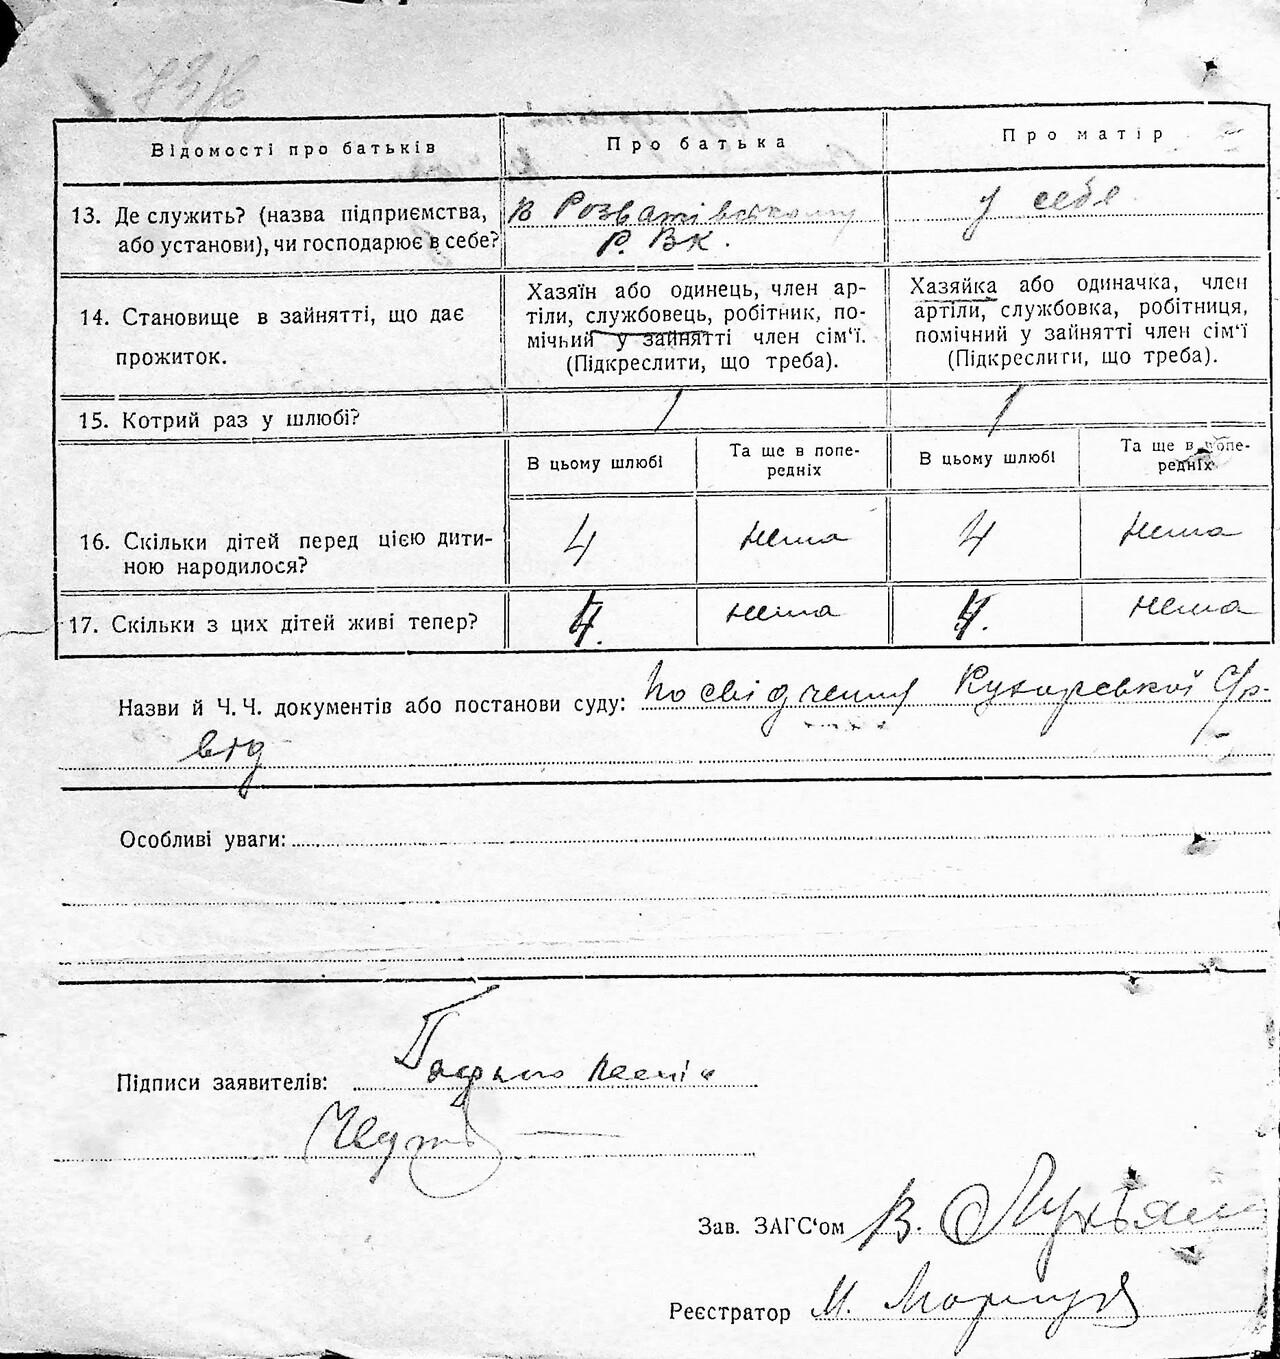 Відомості про батьків
Про батька
Про матір
13. Де служить? (назва підприємства,
або установи), чи господарює в себе?
в Розватівському
Р. Вк.
у себе
14. Становище в зайнятті, що дає
прожиток.
Хазяїн або одинець, член ар-
тіли, службовець, робітник, по-
мічьий у зайнятті член сім'ї.
(Підкреслити, що треба).
Хазяйка або одиначка, член
артіли, службовка, робітниця,
помічний у зайнятті член сім'ї
(Підкреслити, що треба).
15. Котрий раз у шлюбі?
1
1
В цьому шлюбі
Та ще в попе-
редніх
В цьому шлюбі
Та ще в попе-
редніх
16. Скільки дітей перед цією дити-
ною народилося?
4
нема
4
нема
17. Скільки з цих дітей живі тепер?
4.
нема
4.
нема
Назви й Ч. Ч. документів або постанови суду: посвідчення Кухарської С/р.
від
Особливі уваги:
Підписи заявителів:
Зав. ЗАГС'ом В.
Реєстратор М.